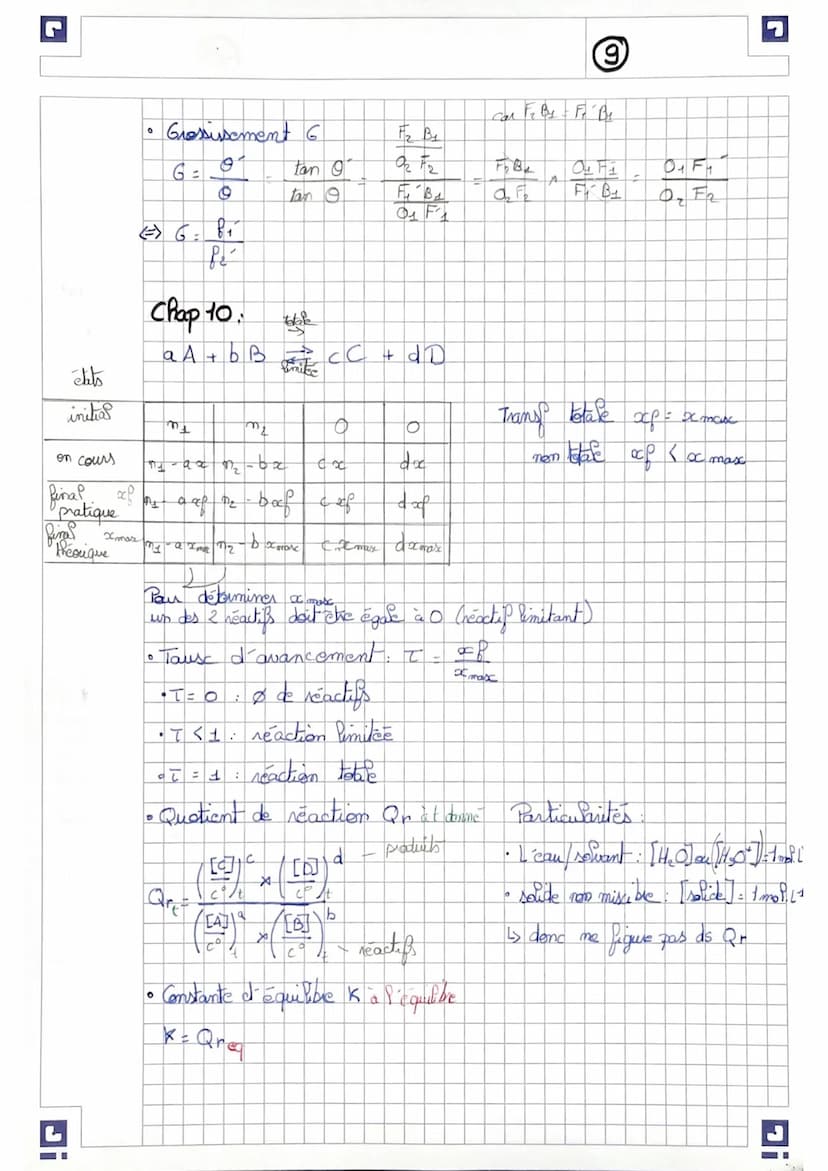 9
• Grossissement G
car F₂B₁ = F₁'B₁
G = θ'/θ = tan θ'/tan θ = (F₂B₁/O₂F₂)/(F₁'B₁/O₁F'₁) = F₂B₁/O₂F₂ × O₁F₁'/F₁'B₁ = O₁F₁'/O₂F₂
⇔ G = f₁'/f₂'
Chap 10 :
totale →
aA + bB ⇌ cC + dD
limitée
états
initial n₁ n₂ 0 0
en cours n₁ - ax n₂ - bx cx dx
final xf pratique n₁ - axf n₂ - bxf cxf dxf
final xmax théorique n₁ - axmax n₂ - bxmax c.xmax dxmax
Transf totale xf = xmax
non totale xf < xmax
Pour déterminer xmax
un des 2 réactifs doit être égale à 0 (réactif limitant)
• Taux d'avancement : τ = xf/xmax
• τ = 0 : ∅ de réactifs
• τ < 1 : réaction limitée
• τ = 1 : réaction totale
• Quotient de réaction Qr à t donné
Qrₜ = (([C]/c°)ᶜₜ × ([D]/c°)ᵈₜ) / (([A]/c°)ᵃₜ × ([B]/c°)ᵇₜ)
– produits
– réactifs
Particularités :
• L'eau/solvant : [H₂O] ou [H₃O⁺] = 1 mol.L
• solide non miscible : [solide] = 1 mol.L-1
↳ donc ne figure pas ds Qr
• Constante d'équilibre K à l'équilibre
K = Qr eq